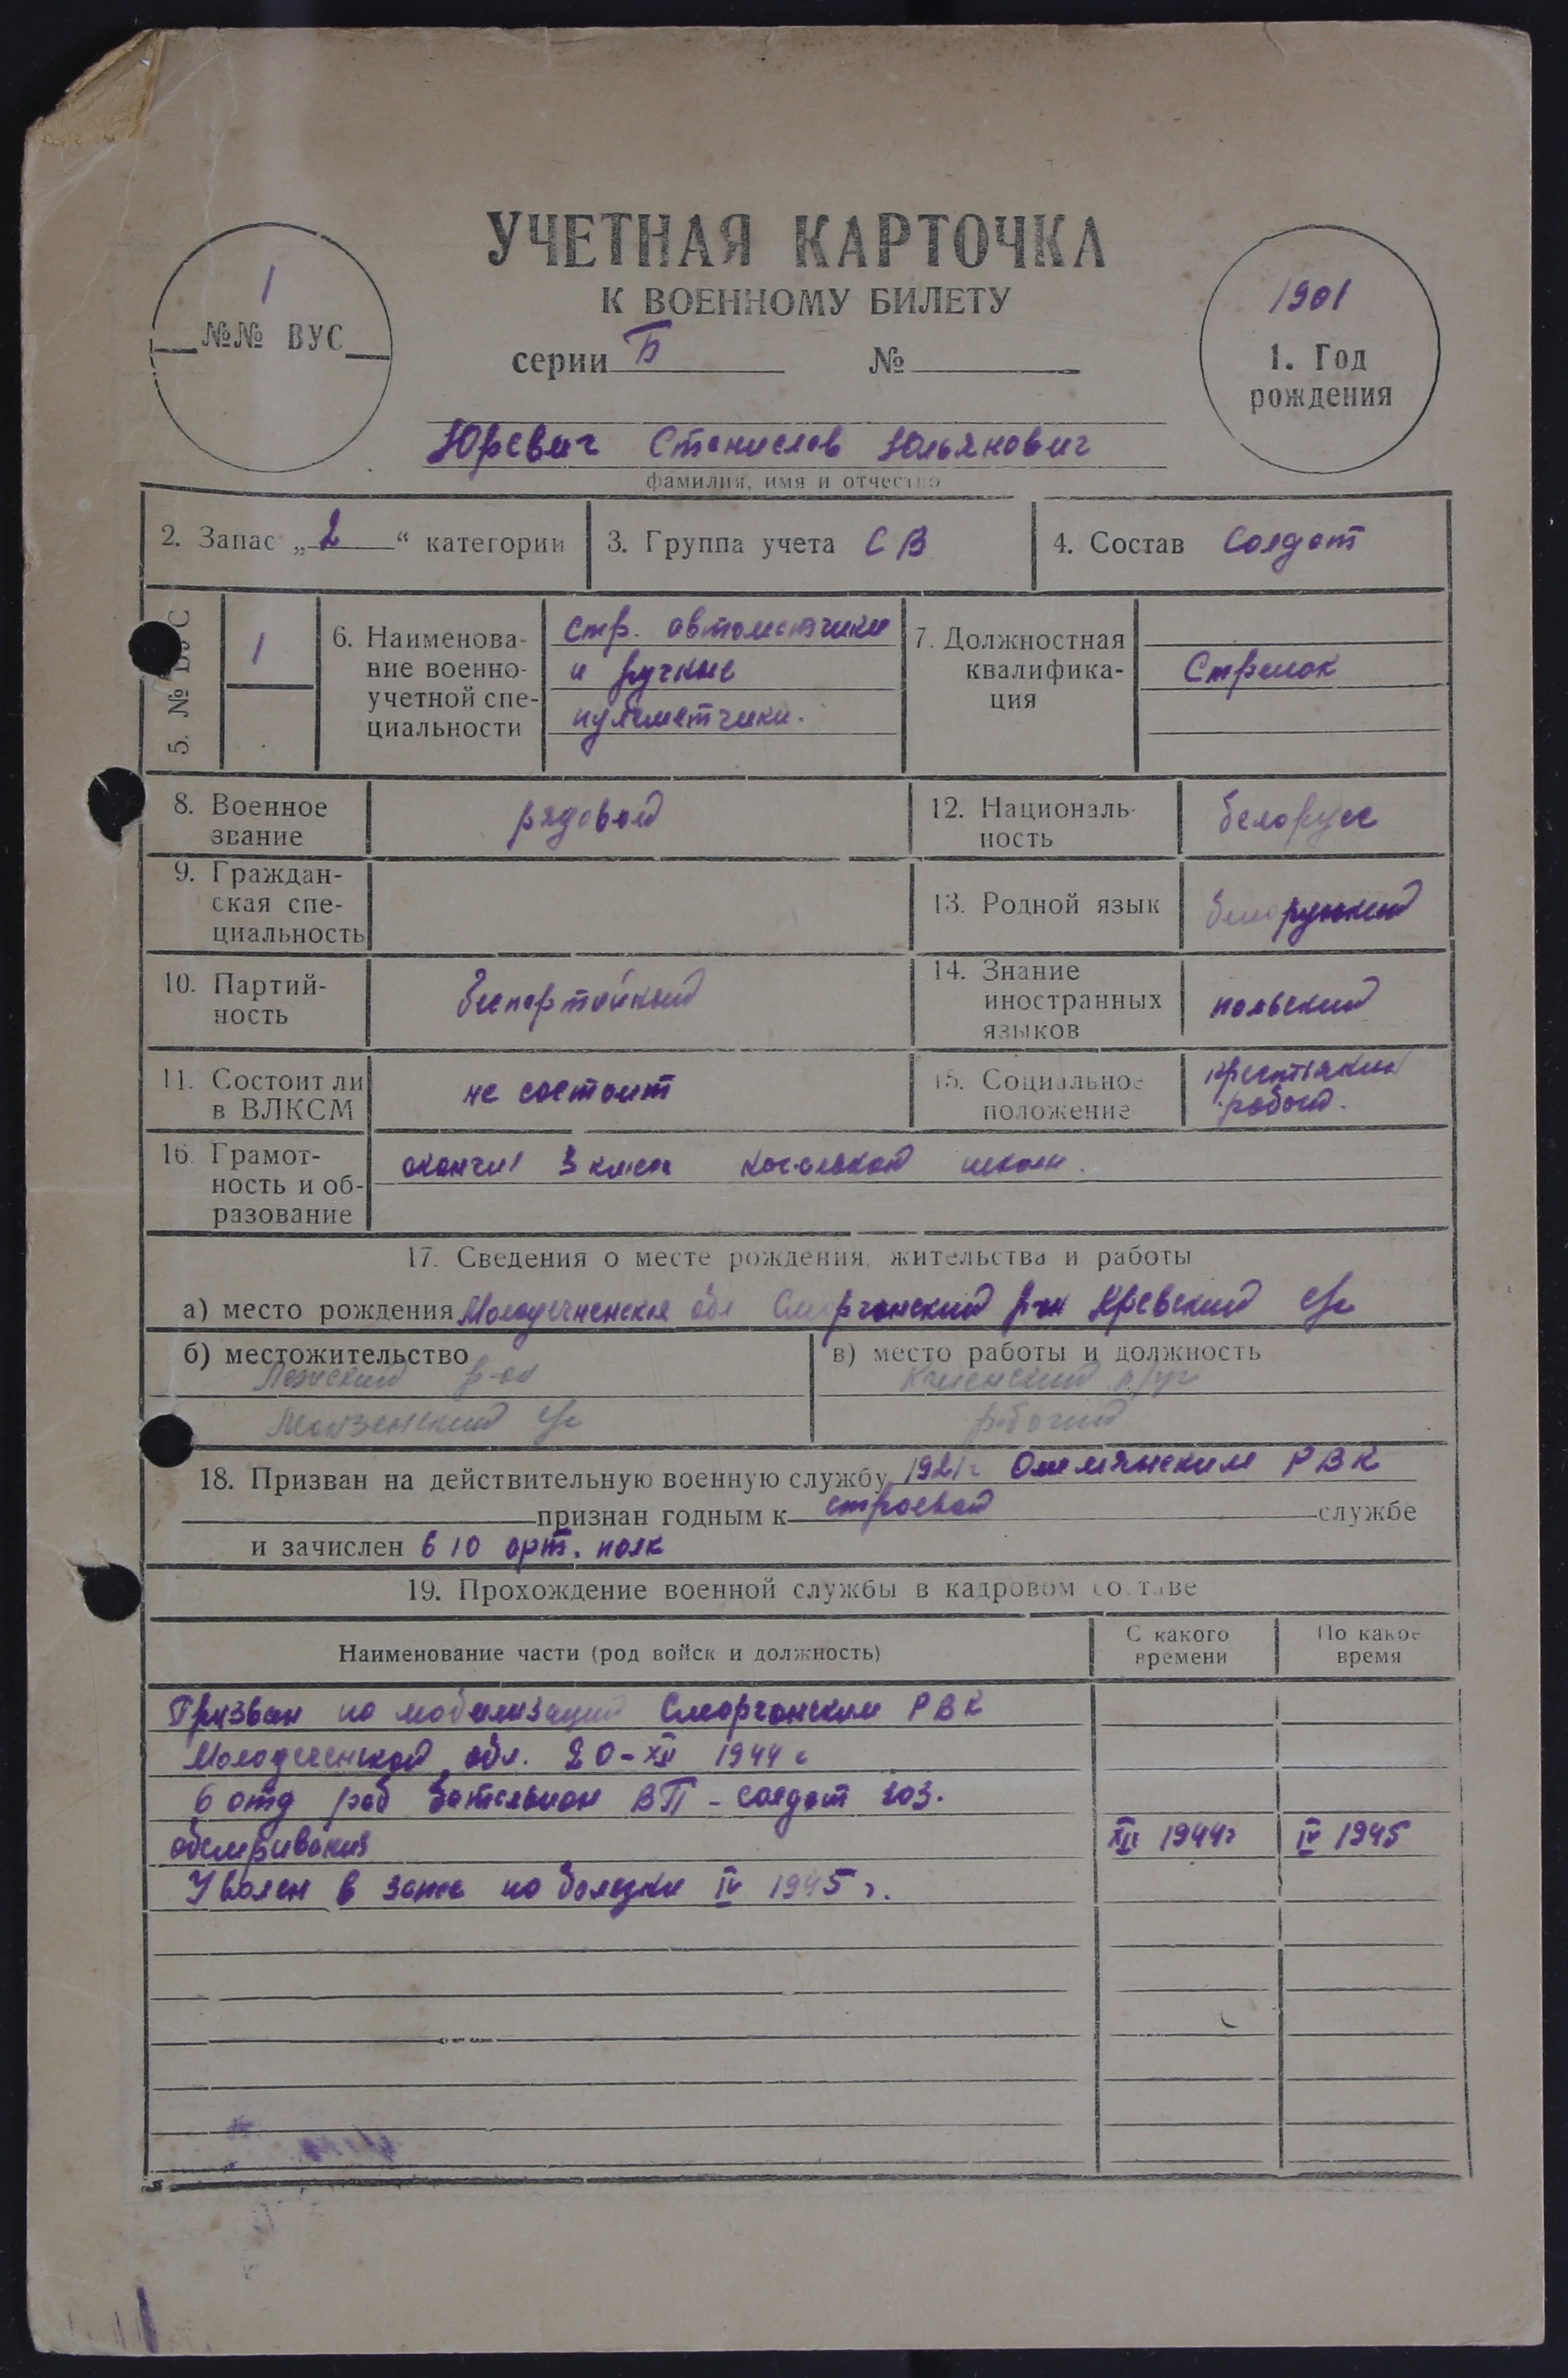 УЧЕТНАЯ КАРТОЧКА
К ВОЕННОМУ БИЛЕТУ
серии Б №
1
№№ ВУС
1901
1. Год
рождения
Юревич Станислав Юльянович
фамилия, имя и отчество
2. Запас „2“ категории
3. Группа учета СВ
4. Состав Солдат
5. № ВУС
1
6. Наименова-
ние военно-
учетной спе-
циальности
Стр. автоматчики
и ручные
пулеметчики.
7. Должностная
квалифика-
ция
Стрелок
8. Военное
звание
рядовой
12. Националь-
ность
белорусс
9. Граждан-
ская спе-
циальность
13. Родной язык
белорусский
10. Партий-
ность
беспартийный
14. Знание
иностранных
языков
польский
11. Состоит ли
в ВЛКСМ
не состоит
15. Социальное
положение
16. Грамот-
ность и об-
разование
окончил 3 класса школы.
17. Сведения о месте рождения, жительства и работы
а) место рождения Молодечненская обл Сморгонский р-он Кревский с/с
б) местожительство
р-он
с/с
в) место работы и должность
рабочий
18. Призван на действительную военную службу 1921г Ошмянским РВК
признан годным к строевой службе
и зачислен 6 10 арт. полк
19. Прохождение военной службы в кадровом составе
Наименование части (род войск и должность)
С какого
времени
По какое
время
Призван по мобилизации Сморгонским РВК
Молодеченской обл. 20-XII 1944 г
6 отд раб батальион ВП - солдат хоз.
XII 1944г
IV 1945
Уволен в запас по болезни IV 1945 г.